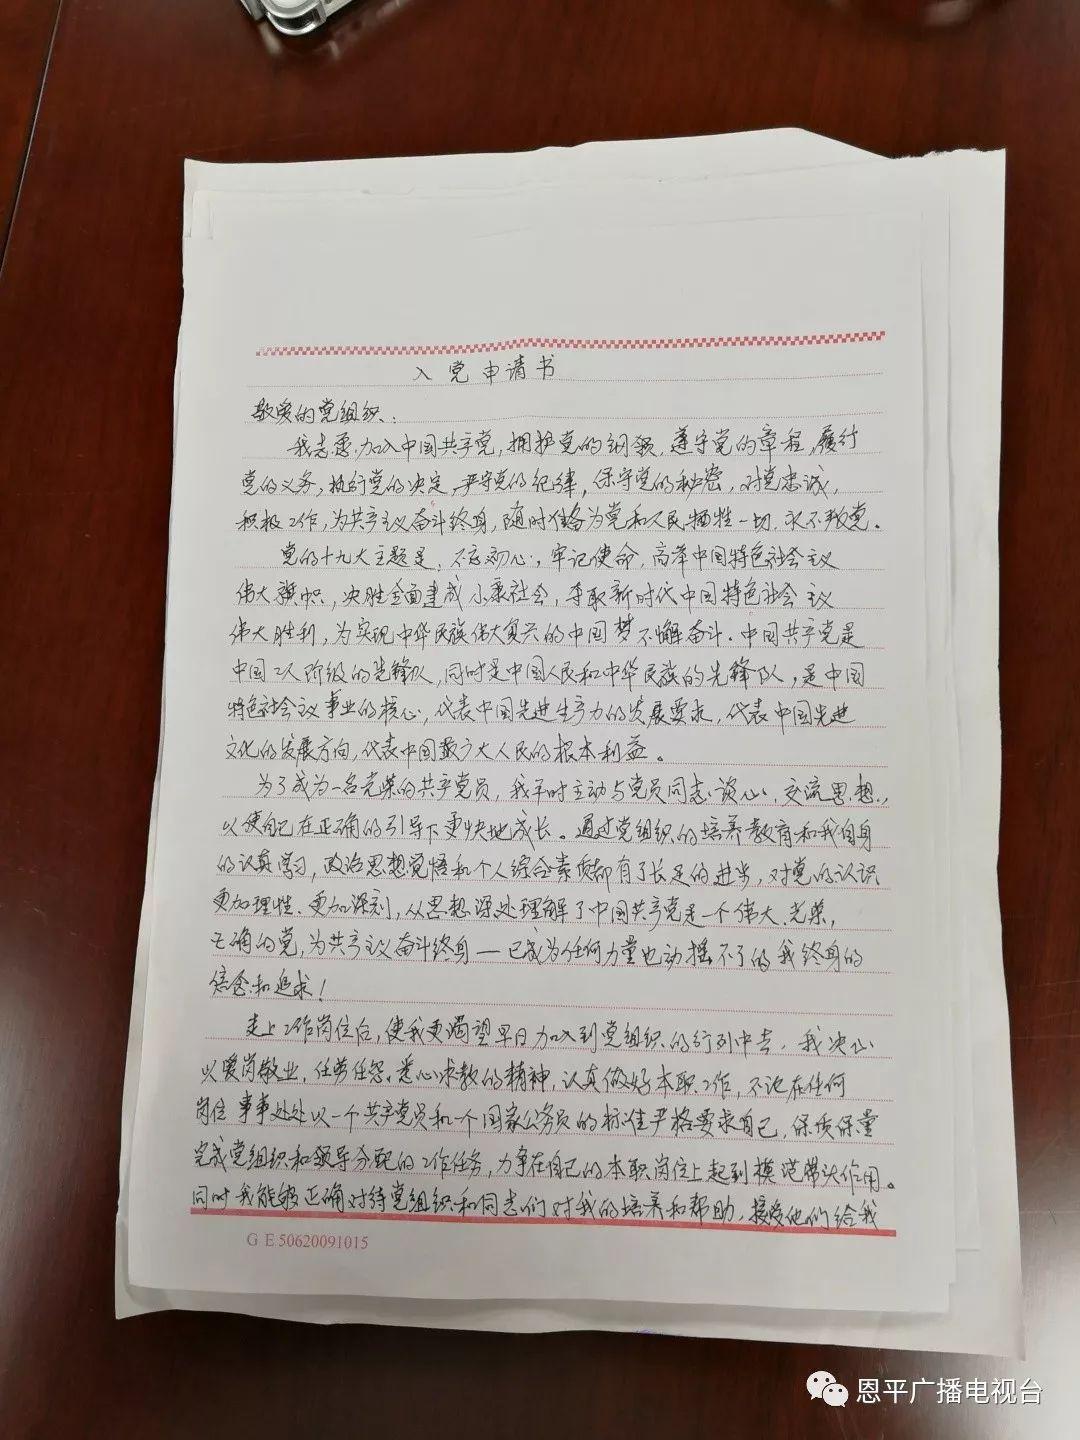 入党申请书
敬爱的党组织:
我志愿加入中国共产党,拥护党的纲领,遵守党的章程,履行
党的义务,执行党的决定,严守党的纪律,保守党的秘密,对党忠诚,
积极工作,为共产主义奋斗终身,随时准备为党和人民牺牲一切,永不叛党。
党的十九大主题是,不忘初心,牢记使命,高举中国特色社会主义
伟大旗帜,决胜全面建成小康社会,夺取新时代中国特色社会主义
伟大胜利,为实现中华民族伟大复兴的中国梦不懈奋斗.中国共产党是
中国工人阶级的先锋队,同时是中国人民和中华民族的先锋队,是中国
特色社会主义事业的核心,代表中国先进生产力的发展要求,代表中国先进
文化的发展方向,代表中国最广大人民的根本利益。
为了成为一名光荣的共产党员,我平时主动与党员同志谈心,交流思想,
以使自己在正确的引导下更快地成长。通过党组织的培养教育和我自身
的认真学习,政治思想觉悟和个人综合素质都有了长足的进步,对党的认识
更加理性、更加深刻,从思想深处理解了中国共产党是一个伟大、光荣,
正确的党,为共产主义奋斗终身一已成为任何力量也动摇不了的我终身的
信念和追求!
走上工作岗位后,使我更渴望早日加入到党组织的行列中去,我决心
以爱岗敬业,任劳任怨,悉心求教的精神,认真做好本职工作,不论在任何
岗位事事处处以一个共产党员和一个国家公务员的标准严格要求自己,保质保量
完成党组织和领导分配的工作任务,力争在自己的本职岗位上起到模范带头作用。
同时我能够正确对待党组织和同志们对我的培养和帮助,接受他们给我
G E 50620091015
恩平广播电视台